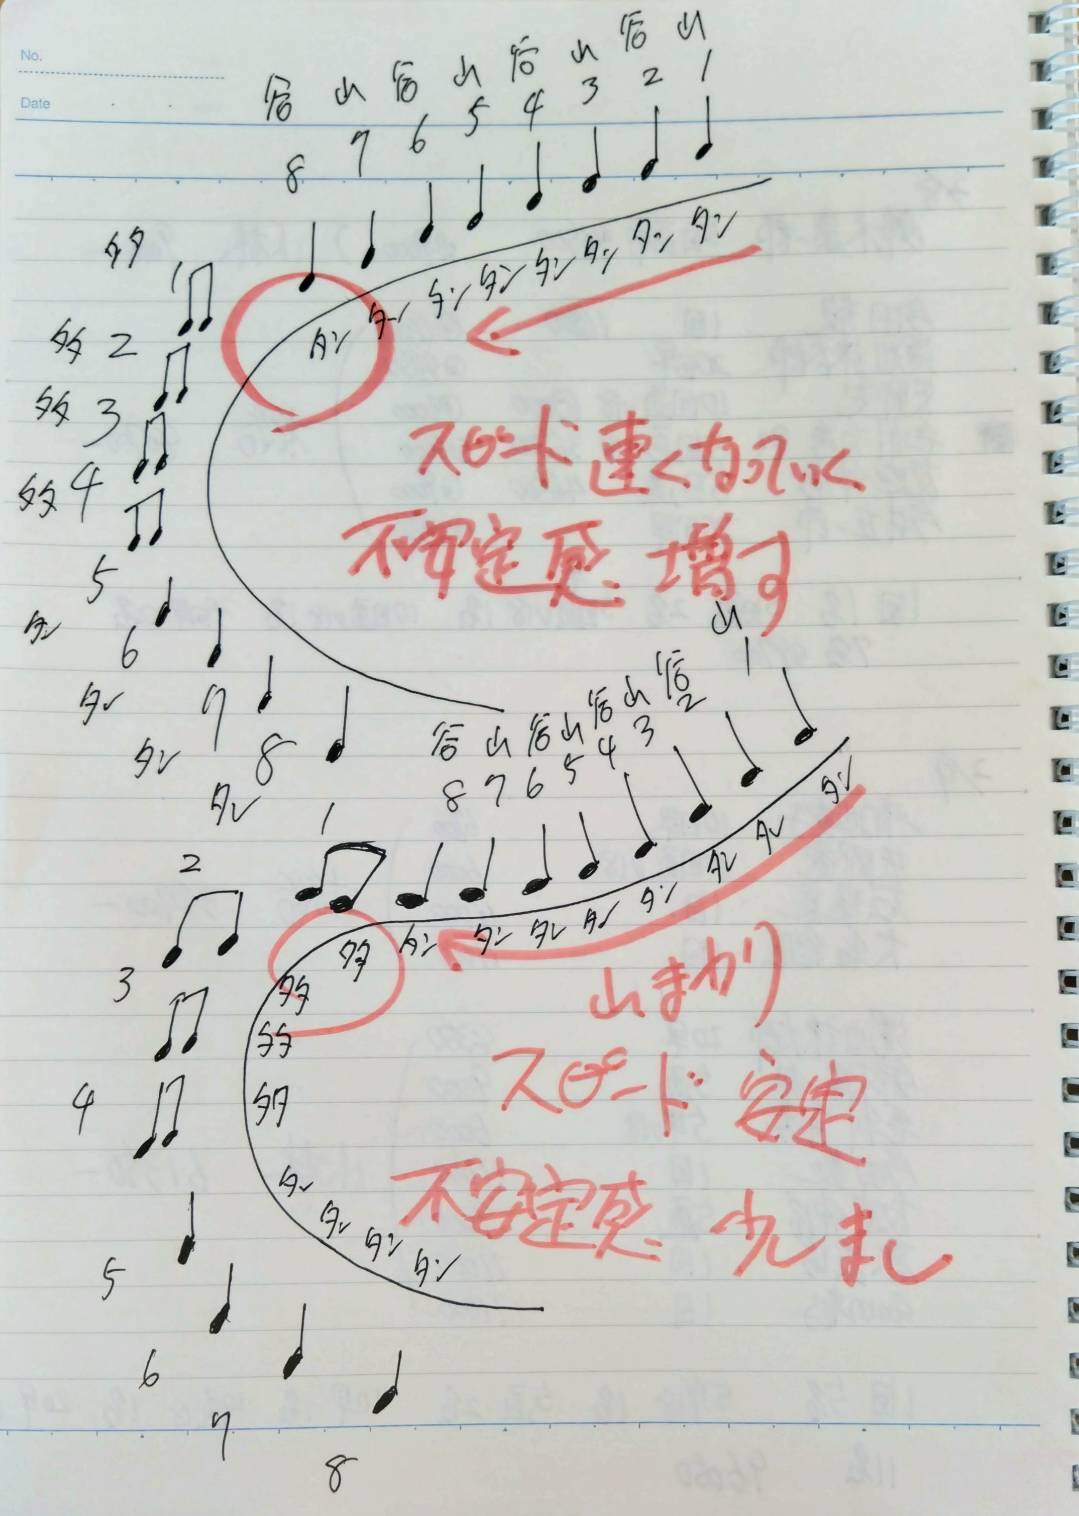 No.
Date
谷 山 谷 山 谷 山 谷 山
8 7 6 5 4 3 2 1
タン タン タン タン タン タン タン タン
タタ 1
タタ 2
タタ 3
タタ 4
5
タン 6
タン 7
タン 8
タン
スピード 速くなっていく
不安定感 増す
谷 山 谷 山 谷 山 谷 山
8 7 6 5 4 3 2 1
タタ タン タン タン タン タン タン タン タン
1
2 タタ
3 タタ
4 タタ
5 タン
6 タン
7 タン
8 タン
山まわり
スピード 安定
不安定感 少しまし